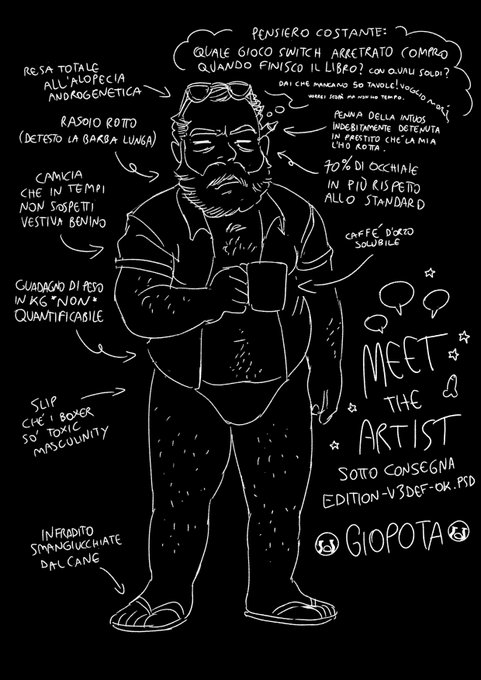 PENSIERO COSTANTE:
QUALE GIOCO SWITCH ARRETRATO COMPRO
QUANDO FINISCO IL LIBRO? CON QUALI SOLDI?
DAI CHE MANCANO 50 TAVOLE! VOGLIO MORÌ
VORREI SERDÀ MA NON HO TEMPO.
RESA TOTALE
ALL'ALOPECIA
ANDROGENETICA
RASOIO ROTTO
(DETESTO LA BARBA LUNGA)
CAMICIA
CHE IN TEMPI
NON SOSPETTI
VESTIVA BENINO
GUADAGNO DI PESO
IN KG *NON*
QUANTIFICABILE
SLIP
CHÉ I BOXER
SO' TOXIC
MASCULINITY
INFRADITO
SMANGIUCCHIATE
DAL CANE
PENNA DELLA INTUOS
INDEBITAMENTE DETENUTA
IN PRESTITO CHÉ LA MIA
L'HO ROTTA.
70% DI OCCHIAIE
IN PIÙ RISPETTO
ALLO STANDARD
CAFFÉ D'ORZO
SOLUBILE
MEET
THE
ARTIST
SOTTO CONSEGNA
EDITION-V3DEF-OK.PSD
GIOPOTA